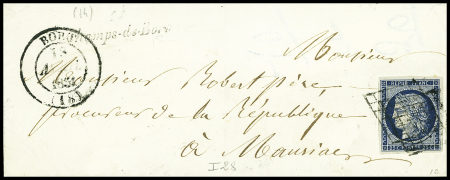 (14)
BORT
Champs-de-Bort
18
1851
(18)
Monsieur
Monsieur Robert père,
procureur de la République
à Mauriac
REPUB. FRANC.
25 25
I-28
12